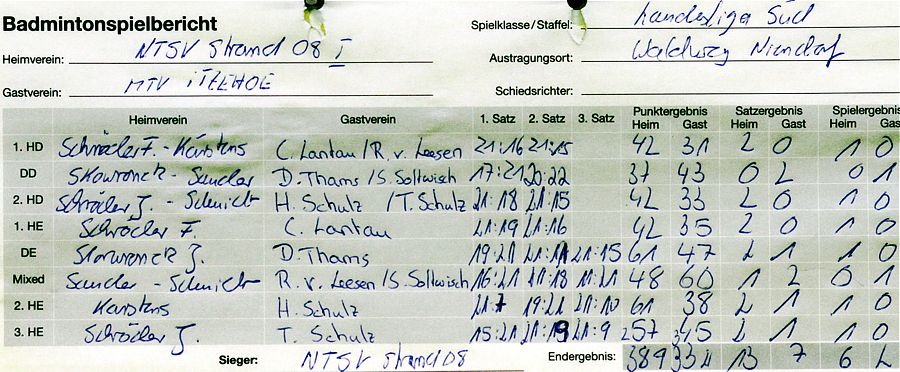 Badmintonspielbericht
Spielklasse/Staffel: Landesliga Süd
Heimverein: NTSV Strand 08 I
Austragungsort: Waldweg Niendorf
Gastverein: MTV ITZEHOE
Schiedsrichter:
Heimverein Gastverein 1. Satz 2. Satz 3. Satz Punktergebnis Heim Gast Satzergebnis Heim Gast Spielergebnis Heim Gast
1. HD Schröder F. - Karstens C. Lantau / R. v. Leesen 21:16 21:15 42 31 2 0 1 0
DD Skowronek - Sander D. Thams / S. Sollwisch 17:21 20:22 37 43 0 2 0 1
2. HD Schröder J. - Schmidt H. Schulz / T. Schulz 21:18 21:15 42 33 2 0 1 0
1. HE Schröder F. C. Lantau 21:19 21:16 42 35 2 0 1 0
DE Skowronek J. D. Thams 19:21 21:11 21:15 61 47 2 1 1 0
Mixed Sander - Schmidt R. v. Leesen / S. Sollwisch 16:21 21:18 11:21 48 60 1 2 0 1
2. HE Karstens H. Schulz 21:7 19:21 21:10 61 38 2 1 1 0
3. HE Schröder J. T. Schulz 15:21 21:9 57 45 2 1 1 0
Sieger: NTSV Strand 08 Endergebnis: 389 334 13 7 6 2